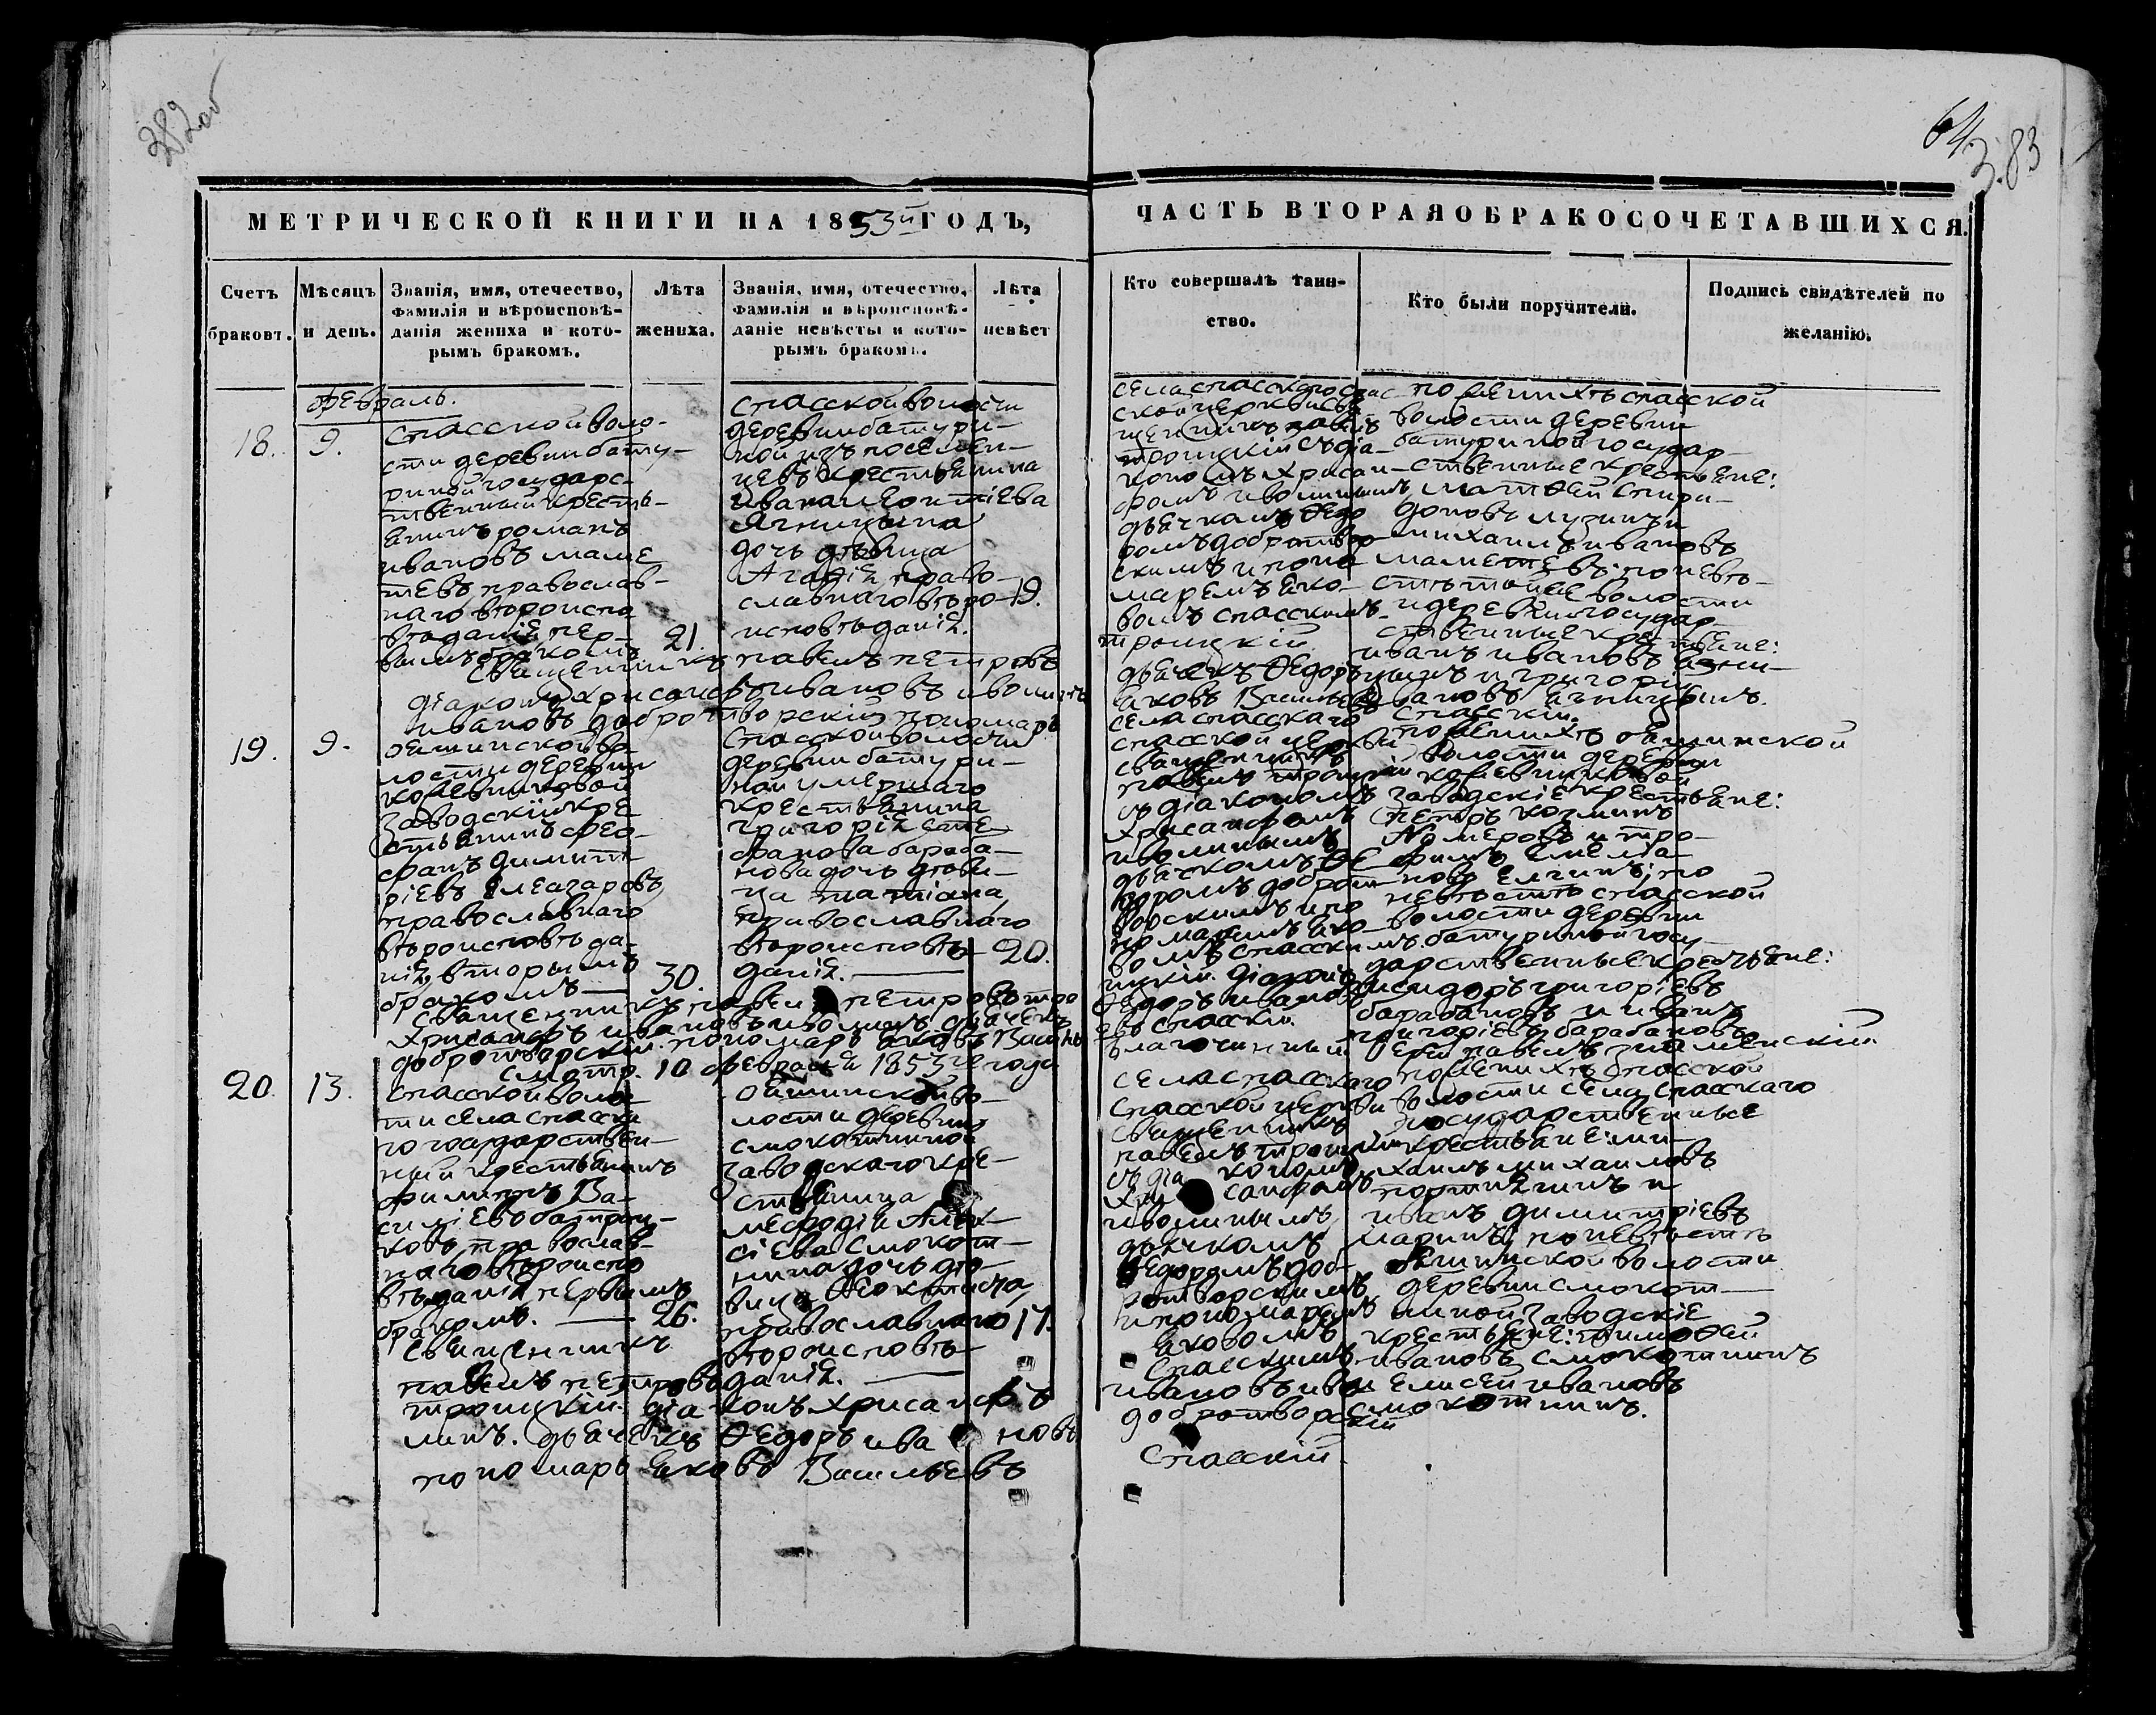 282об
64
383
МЕТРИЧЕСКОЙ КНИГИ НА 1853й ГОДЪ,
ЧАСТЬ ВТОРАЯ О БРАКОСОЧЕТАВШИХСЯ.
Счетъ браковъ.
Мѣсяцъ и день.
Званія, имя, отечество,
фамилія и вѣроисповѣ-
данія жениха и кото-
рымъ бракомъ.
Лѣта
жениха.
Званія, имя, отечество,
фамилія и вѣроисповѣ-
даніе невѣсты и кото-
рымъ бракомъ.
Лѣта
невѣст
Кто совершалъ таин-
ство.
Кто были поручители.
Подпись свидѣтелей по
желанію.
Февраль.
18.
9.
Спасской воло-
сти деревни Бату-
риной государс-
твенный кресть-
янинъ Романъ
Ивановъ Маме
тевъ православ-
наго вѣроиспо
вѣданія пер-
вымъ бракомъ
21.
Спасской волости
деревни Батури-
ной изъ поселен-
цевъ крестьянина
Ивана Леонтіева
Ячницына
дочь девица
Агафія право-
славнаго вѣро-
исповѣданія.
19.
села Спасскаго Спас
ской церкви свя
щенникъ Павелъ
Троицкій съ діа-
кономъ Хрисан-
фомъ Иволинымъ
дьячкомъ Ѳедо
ромъ Добротвор
скимъ и поно
маремъ Яко-
вомъ Спасскимъ
по женихѣ Спасской
волости деревни
Батуриной государ-
ственные крестьяне:
Матѳей Спири-
доновъ Лузинъ и
Михаилъ Ивановъ
Маметевъ; по невѣ-
стѣ той же волости
и деревни государ-
ственные крестьяне:
Иванъ Ивановъ
Священникъ Павелъ Петровъ
Троицкій
діаконъ Хрисанфъ Ивановъ Иволинъ
дьячекъ Ѳедоръ
Ивановъ Добротворскій пономарь
Яковъ Васильевъ
Спасскій.
19.
9.
Ояшинской во-
лости деревни
Кожевниковой
заводскій кре
стьянинъ Фео-
фанъ Димит-
ріевъ Елеазаровъ
православнаго
вѣроисповѣда-
нія, вторымъ
бракомъ
30.
Спасской волости
деревни Батури-
ной умершаго
крестьянина
Григорія Сте
фанова Бараба-
нова дочь дѣви-
ца Татіана
православнаго
вѣроисповѣ-
данія.
20.
села Спасскаго
Спасской церкви
священникъ
Павелъ Троицкій
съ діакономъ
Хрисанфомъ
Иволинымъ
дьячкомъ Ѳе
доромъ Доброт-
ворскимъ и по
номаремъ Яко-
вомъ Спасскимъ
по женихѣ Ояшинской
волости деревни
Кожевниковой
заводскіе крестьяне:
Петръ Козминъ
и Тро-
фимъ Емелья-
новъ Елгинъ; по
невѣстѣ Спасской
волости деревни
Батуриной госу-
дарственные крестьяне:
Исидоръ Григоріевъ
Барабановъ и Иванъ
Григоріевъ Барабановъ
Священникъ Павелъ Петровъ Тро
ицкій. діаконъ
Хрисанфъ Ивановъ Иволинъ дьячекъ
Ѳедоръ Ивановъ
Добротворскій. пономарь Яковъ Василь
евъ Спасскій.
Смотр. 10 февраля 1853го года
благочинный Іерей Павелъ Знаменскій.
20.
13.
Спасской волос
ти села Спасска
го государствен-
ный крестьянинъ
Филиппъ Ва-
силіевъ
православ-
наго вѣроиспо
вѣданія первымъ
бракомъ.
26.
Ояшинской во-
лости деревни
Смокотиной
заводскаго кре-
стьянина
Мефодія Алек-
сіева Смокот-
нина дочь дѣ-
вица Ѳеоктиста
православнаго
вѣроисповѣ-
данія.
17.
села Спасскаго
Спасской церкви
священникъ
Павелъ Троицкій
съ діакономъ
Хрисанфомъ
Иволинымъ
дьячкомъ
Ѳедоромъ Доб-
ротворскимъ
и пономаремъ
Яковомъ
Спасскимъ
по женихѣ Спасской
волости села Спасскаго
государственные
крестьяне: Ми-
хаилъ Михаиловъ
Портнягинъ и
Иванъ Димитріевъ
Маринъ; по невѣстѣ
Ояшинской волости
деревни Смокот-
ниной заводскіе
крестьяне: Тимоѳей
Ивановъ Смокотнинъ
и Елисей Ивановъ
Смокотнинъ.
Священникъ
Павелъ Петровъ
Троицкій. діаконъ Хрисанфъ
Ивановъ Иво
линъ. дьячекъ Ѳедоръ Ивановъ
Добротворскій
пономарь Яковъ Васильевъ
Спасскій